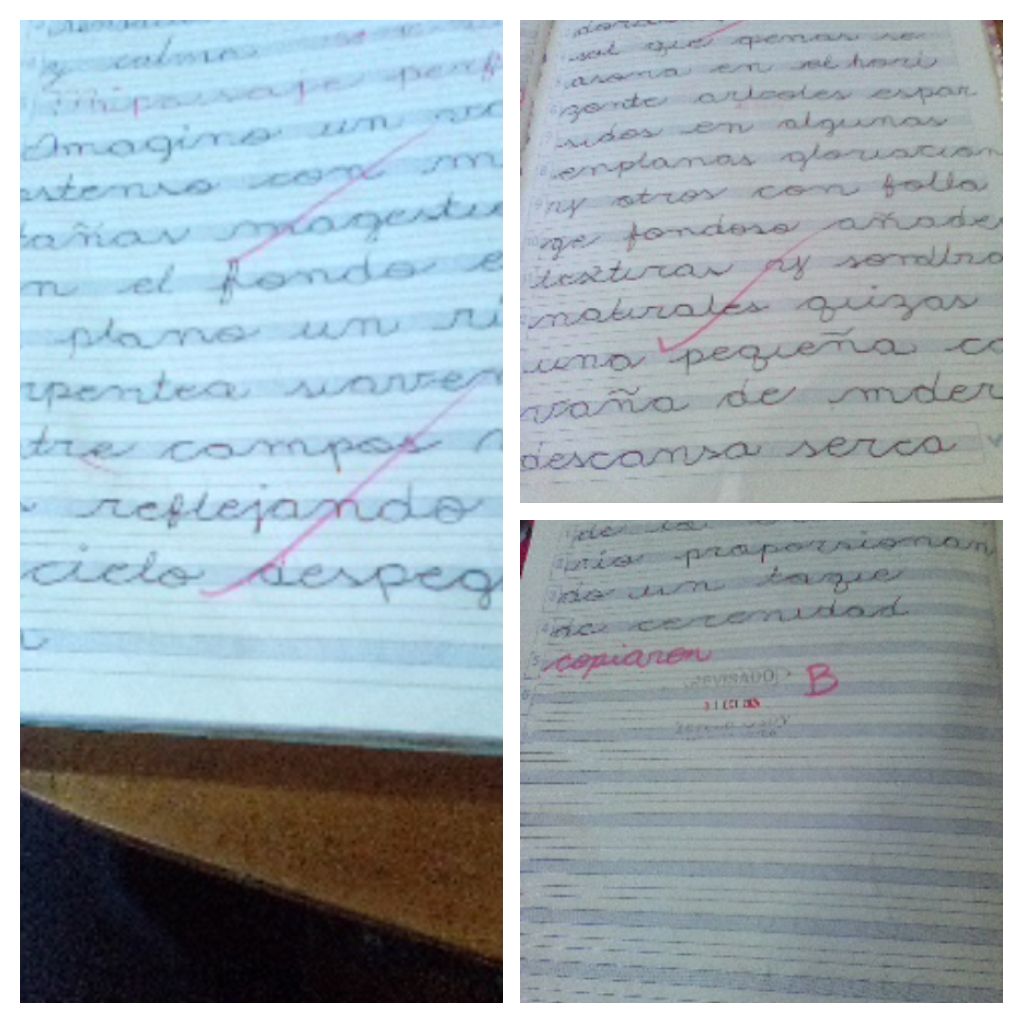 y calma
Mi paisaje perf
Imagino un va
ostenso con m
tañas magestu
n el fondo e
plano un ri
rpentea suaven
tre campos
reflejando
cielo despeg
sol que penas se
asoma en el hori
zonte arlcoles espar
sidos en algunas
enplanas gloriacion
y otros con folla
ge fondoso añade
texturas y sondra
naturales quizas
una pequeña ca
vaña de mder
descansa serca
de la
rio proporsionan
do un toque
de cerenidad
copiaron
REVISADO
B